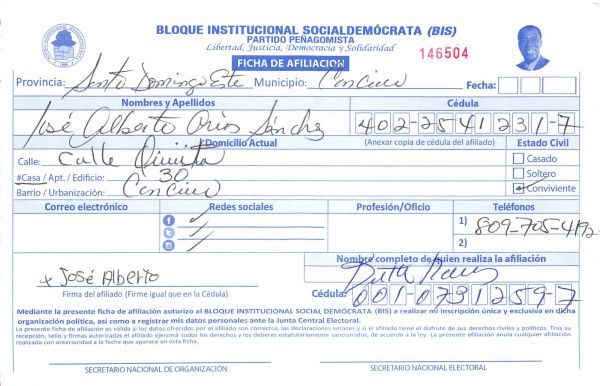 BLOQUE INSTITUCIONAL SOCIALDEMÓCRATA (BIS)
PARTIDO PEÑAGOMISTA
Libertad, Justicia, Democracia y Solidaridad
146504
FICHA DE AFILIACION
Provincia: Santo Domingo Este Municipio: Cancino Fecha:
Nombres y Apellidos Cédula
José Alberto Sánchez 402-2541231-7
Domicilio Actual (Anexar copia de cédula del afiliado) Estado Civil
Calle: Calle Quinta Casado
#Casa / Apt. / Edificio: 30 Soltero
Barrio / Urbanización: Cancino Conviviente
Correo electrónico Redes sociales Profesión/Oficio Teléfonos
1) 809-705-4192
2)
Nombre completo de quien realiza la afiliación
x José Alberto
Firma del afiliado (Firme igual que en la Cédula) Cédula: 001-0731259-7
Mediante la presente ficha de afiliación autorizo al BLOQUE INSTITUCIONAL SOCIAL DEMÓCRATA (BIS) a realizar mi inscripción única y exclusiva en dicha
organización política, así como a registrar mis datos personales ante la Junta Central Electoral.
La presente ficha de afiliación es válida si los datos ofrecidos por el afiliado son correctos, las declaraciones veraces y si el afiliado tiene el disfrute de sus derechos civiles y políticos. Tras su
recepción, sello y firmas autorizadas el afiliado ejercerá todos los derechos y los deberes estatutariamente sancionados, de acuerdo a la ley. La presente afiliación anula cualquier afiliación
realizada con anterioridad a la fecha que aparece en esta ficha.
SECRETARIO NACIONAL DE ORGANIZACIÓN SECRETARIO NACIONAL ELECTORAL